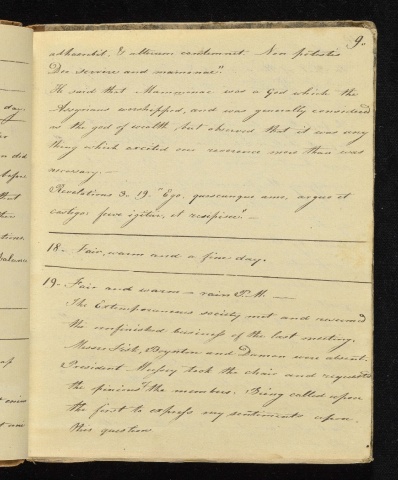 9.
adhaerebit, & alterum contemnet. Non potestis
Deo servire and mammonae".
He said that Mammonae was a God which the
Assyrians worshipped, and was generally considered
as the god of wealth but observed that it was any
thing which excited our reverence more than was
necessary. —
Revelations 3. 19. "Ego, quoscunque amo, arguo et
castigo: fervo igitur, et resipisce". —
18. Fair, warm and a fine day.
19. Fair and warm — rain P.M. —
The Extemporaneous society met and resumed
the unfinished business of the last meeting.
Messrs Fisk, Boynton and Damon were absent.
President Mussey took the chair and requested
the opinions of the members. Being called upon
the first to express my sentiments upon
this question
day.
did
before
that